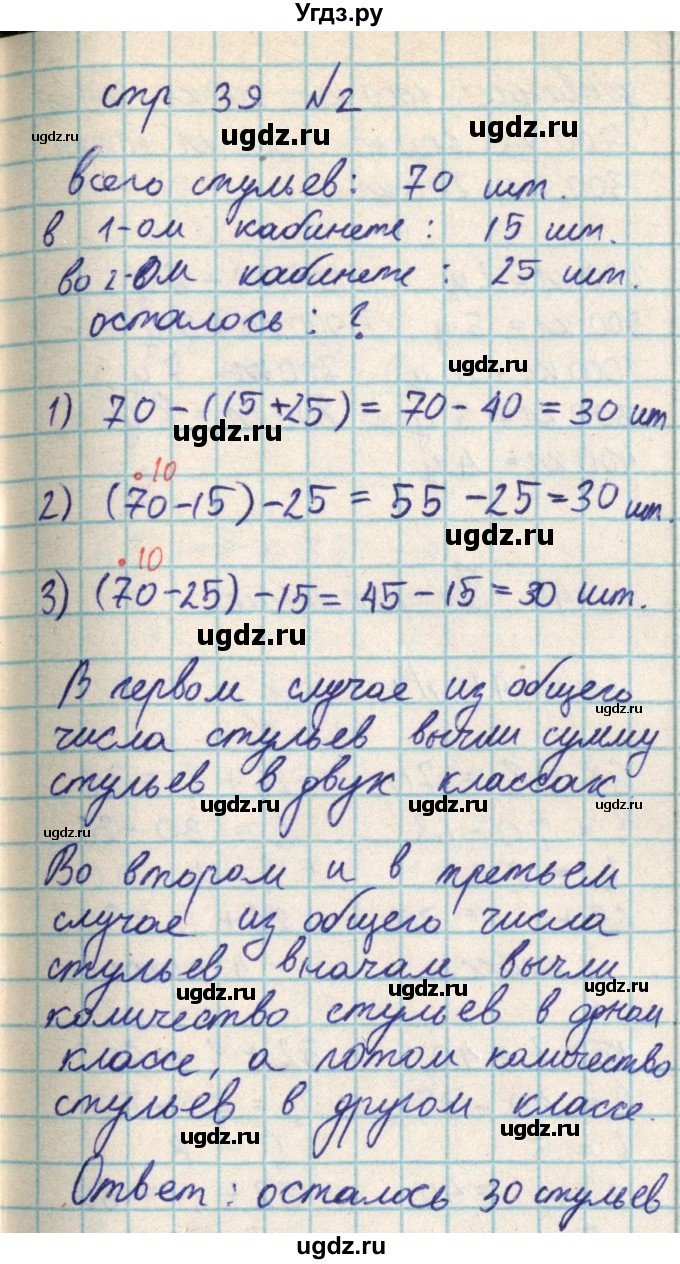 Угдз.ру
стр 39 №2
ugdz.ru ugdz.ru ugdz.ru
всего стульев: 70 шт.
в 1-ом кабинете: 15 шт.
во 2-ом кабинете: 25 шт.
осталось: ?
ugdz.ru
1) 70-(15+25)=70-40=30 шт
ugdz.ru
•10
2) (70-15)-25=55-25=30 шт.
ugdz.ru
•10
3) (70-25)-15=45-15=30 шт.
ugdz.ru
В первом случае из общего
ugdz.ru
числа стульев вычли сумму
стульев в двух классах
ugdz.ru ugdz.ru
ugdz.ru
Во втором и в третьем
случае из общего числа
стульев вначале вычли
ugdz.ru ugdz.ru
количество стульев в одном
классе, а потом количество
стульев в другом классе.
ugdz.ru ugdz.ru
Ответ: осталось 30 стульев
ugdz.ru